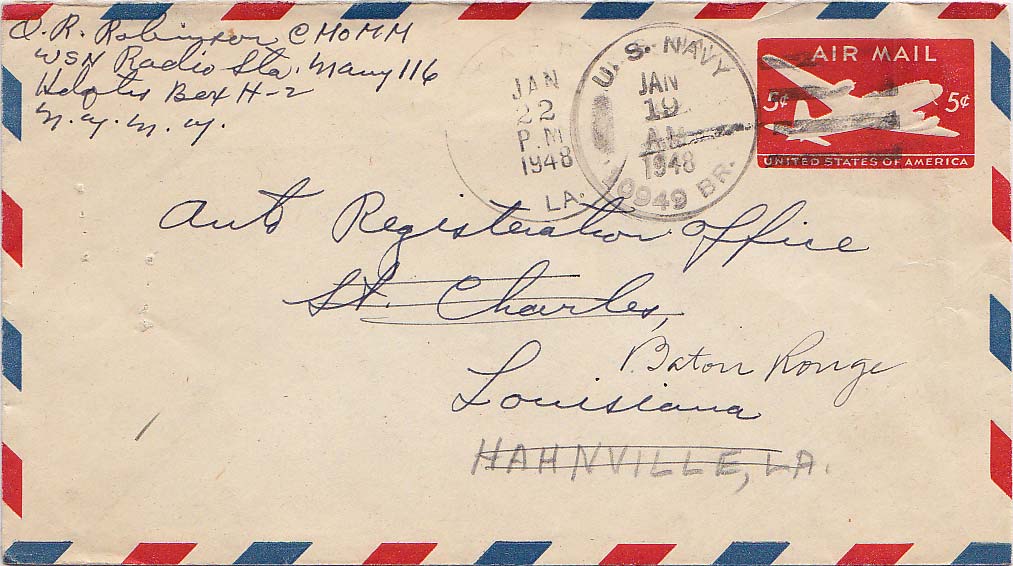 O. R. Robinson CMOMM
USN Radio Sta. Navy 116
Hdqtrs Box H-2
N.Y. N.Y.
JAN
22
P.M
1948
LA.
U.S. NAVY
JAN
19
A.M.
1948
10949 BR.
AIR MAIL
5¢ 5¢
UNITED STATES OF AMERICA
Auto Registration Office
St. Charles,
Baton Rouge
Louisiana
HAHNVILLE, LA.